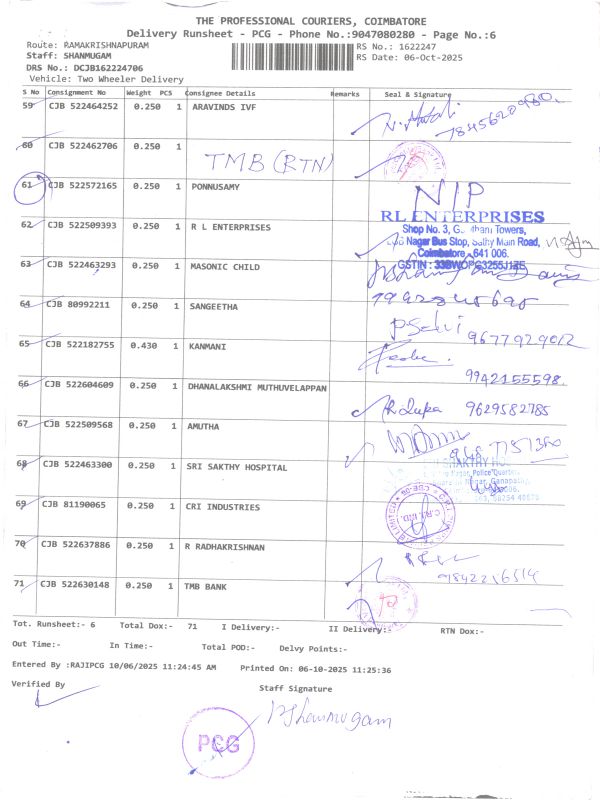 THE PROFESSIONAL COURIERS, COIMBATORE
Delivery Runsheet - PCG - Phone No.:9047080280 - Page No.:6
Route: RAMAKRISHNAPURAM
RS No.: 1622247
Staff: SHANMUGAM
RS Date: 06-Oct-2025
DRS No.: DCJB162224706
Vehicle: Two Wheeler Delivery
S No Consignment No Weight PCS Consignee Details Remarks Seal & Signature
59 CJB 522464252 0.250 1 ARAVINDS IVF
7845620980.
60 CJB 522462706 0.250 1 TMB (RTN)
61 CJB 522572165 0.250 1 PONNUSAMY
N/P
RL ENTERPRISES
Shop No. 3, Towers,
Nagar Bus Stop, Sathy Main Road,
Coimbatore 641 006.
62 CJB 522509393 0.250 1 R L ENTERPRISES
63 CJB 522463293 0.250 1 MASONIC CHILD
64 CJB 80992211 0.250 1 SANGEETHA
P. Selvi 9677929012
65 CJB 522182755 0.430 1 KANMANI
9942155598.
66 CJB 522604609 0.250 1 DHANALAKSHMI MUTHUVELAPPAN
R. Rupa 9629582785
67 CJB 522509568 0.250 1 AMUTHA
68 CJB 522463300 0.250 1 SRI SAKTHY HOSPITAL
69 CJB 81190065 0.250 1 CRI INDUSTRIES
70 CJB 522637886 0.250 1 R RADHAKRISHNAN
9842216514
71 CJB 522630148 0.250 1 TMB BANK
Tot. Runsheet:- 6 Total Dox:- 71 I Delivery:- II Delivery:- RTN Dox:-
Out Time:- In Time:- Total POD:- Delvy Points:-
Entered By :RAJIPCG 10/06/2025 11:24:45 AM Printed On: 06-10-2025 11:25:36
Verified By
Staff Signature
P. Shanmugam
PCG